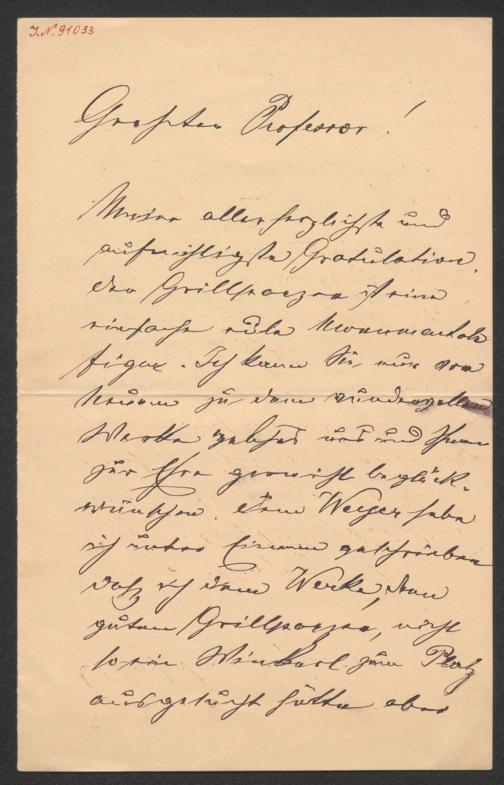 J.N. 91033
Professor!
Meine allerherzlichste und
aufrichtigste Gratulation,
der Grillparzer ist eine
einfache edle Monumental
figur. Ich kann Sie nur von
Neuem zu dem wundervollen
Werke welches uns und Ihnen
zur Ehre gereicht beglück-
wünschen. Dem Weyer habe
ich unter Einem geschrieben
daß ich dem Werke, dem
guten Grillparzer, nicht
so ein Winkerl zum Platz
ausgesucht hätte aber